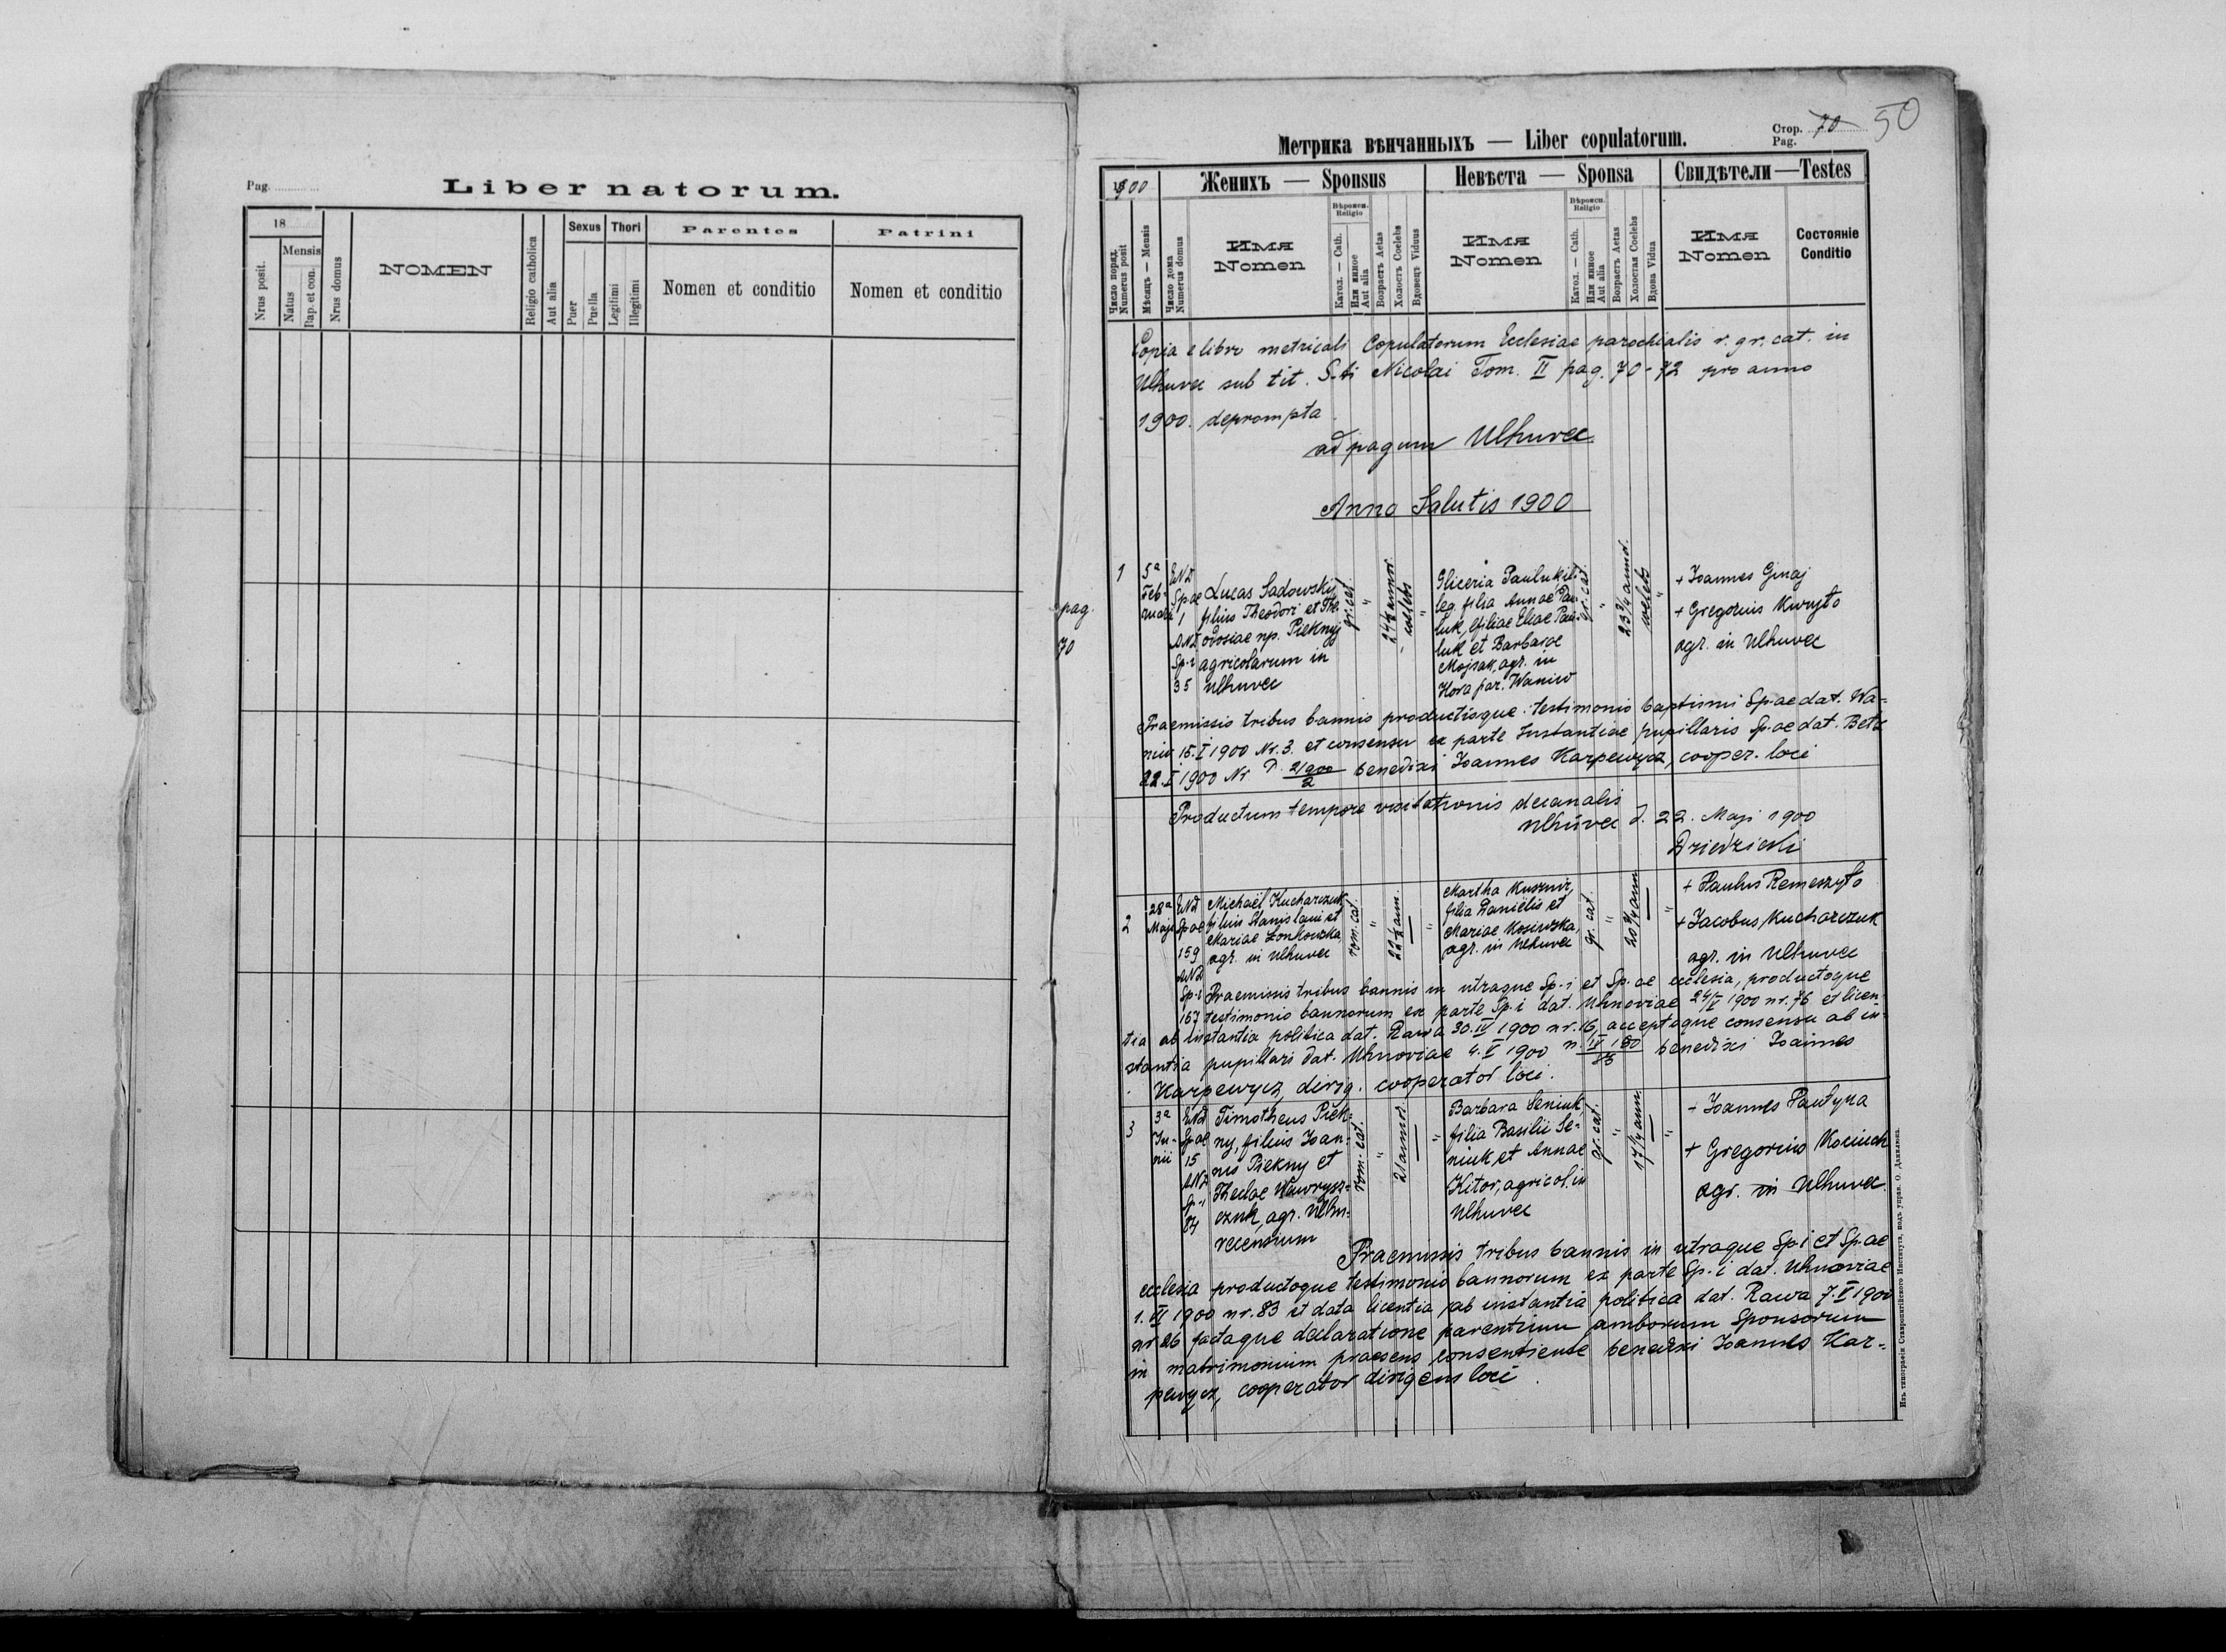 Pag.
Liber natorum.
18
Nrus posit.
Mensis
Natus
Bap. et con.
Nrus domus
NOMEN
Religio catholica
Aut alia
Sexus
Puer
Puella
Thori
Legitimi
Illegitimi
Parentes
Nomen et conditio
Patrini
Nomen et conditio
Стор. 70 50
Pag.
Метрика вѣнчанныхъ — Liber copulatorum.
1900
Женихъ — Sponsus
Невѣста — Sponsa
Свидѣтели — Testes
Число поряд.
Numerus posit
Мѣсяцъ — Mensis
Число дома
Numerus domus
Имя
Nomen
Вѣроисп.
Religio
Катол. — Cath.
Или инное
Aut alia
Возрастъ Aetas
Холостъ Coelebs
Вдовецъ Viduus
Имя
Nomen
Вѣроисп.
Religio
Катол. — Cath.
Или инное
Aut alia
Возрастъ Aetas
Холостая Coelebs
Вдова Vidua
Имя
Nomen
Состояніе
Conditio
Copia e libro metricali Copulatorum Ecclesiae parochialis r. gr. cat. in
Ulhuvec sub tit. S.ti Nicolai Tom. II pag. 70-72 pro anno
1900. deprompta
ad pagum Ulhuvec
Anno Salutis 1900
pag.
70
1
5a
Feb-
ruarii
Sp.ae
1
Sp-i
35
Lucas Sadowskij
filius Theodori et The-
odosiae np. Pieknyj
agricolarum in
Ulhuvec
gr. cat.
"
24 1/2 annor.
coelebs
"
Gliceria Pauluk, il-
leg. filia Annae Pau-
luk, filiae Eliae Pau-
luk et Barbarae
Mojsak, agr. in
Hora par. Waniw
gr. cat.
"
23 3/4 annor.
coelebs
"
+ Joannes Gmaj
+ Gregorius Kuryło
agr. in Ulhuvec
Praemissis tribus bannis productisque testimonio baptismi Sp.ae dat. Wa-
niw 15. I 1900 Nr. 3. et consensu ex parte Instantiae pupillaris Sp.ae dat. Betz
22. I 1900 Nr P. 2/900/2 benedixi Joannes Karpewycz, cooper. loci
Productum tempore visitationis decanalis
Ulhuvec d. 22. Maji 1900
Dziedzicki
2
28a
Maji
Sp.ae
159
Sp-i
167
Michaël Kucharczuk
filius Stanislaui et
Mariae Lonkowska
agr. in Ulhuvec
rom. cat.
"
22 1/2 ann.
—
"
Martha Kusznir,
filia Danielis et
Mariae Kosiwzka,
agr. in Ulhuvec
gr. cat.
"
20 3/4 ann
—
"
+ Paulus Remeszyło
+ Jacobus Kucharczuk
agr. in Ulhuvec
Praemissis tribus bannis in utraque Sp-i et Sp.ae ecclesia, productoque
testimonio bannorum ex parte Sp-i dat. Uhnoviae 24/V 1900 nr. 76 et licen-
tia ab instantia politica dat. Rawa 30. IV 1900 nr. 16, acceptoque consensu ab in-
stantia pupillari dat. Uhnoviae 4. V 1900 benedixi Joannes
Karpewycz, dirig. cooperator loci.
3
3a
Ju-
nii
Sp.ae
15
Sp-i
84
Timotheus Piek-
ny, filius Joan-
nis Piekny et
Theclae Wawrysz-
czuk, agr. Ulhu-
vecensium
rom. cat.
"
21 annor.
—
"
Barbara Seniuk,
filia Basilii Se-
niuk et Annae
Kitor, agricol. in
Ulhuvec
gr. cat.
"
17 1/4 ann.
—
"
+ Joannes Pautyna
+ Gregorius Kociuch
agr. in Ulhuvec
Praemissis tribus bannis in utraque Sp-i et Sp.ae
ecclesia productoque testimonio bannorum ex parte Sp-i dat. Uhnoviae
1. VI 1900 nr. 83 et data licentia ab instantia politica dat. Rawa 7. V 1900
nr 26 factaque declaratione parentum amborum Sponsorum
in matrimonium praesens consentiente benedixi Joannes Kar-
pewycz, cooperator dirigens loci.
Изъ типографіи Ставропигійского Института, подъ управ. О. Данилюка.